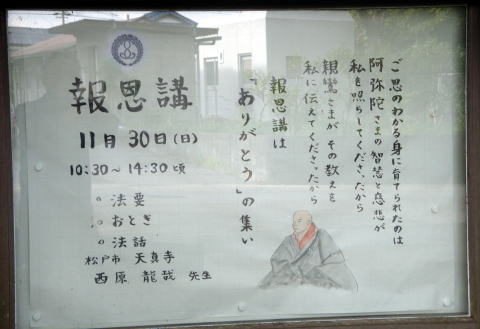 ご恩のわかる身に育てられたのは
阿弥陀さまの智慧と慈悲が
私を照らしてくださったから
親鸞さまが その教えを
私に伝えてくださったから
報恩講は
「ありがとう」の集い
報恩講
11月30日(日)
10:30〜14:30頃
。法要
。おとき
。法話
松戸市 天真寺
西原 龍哉 先生